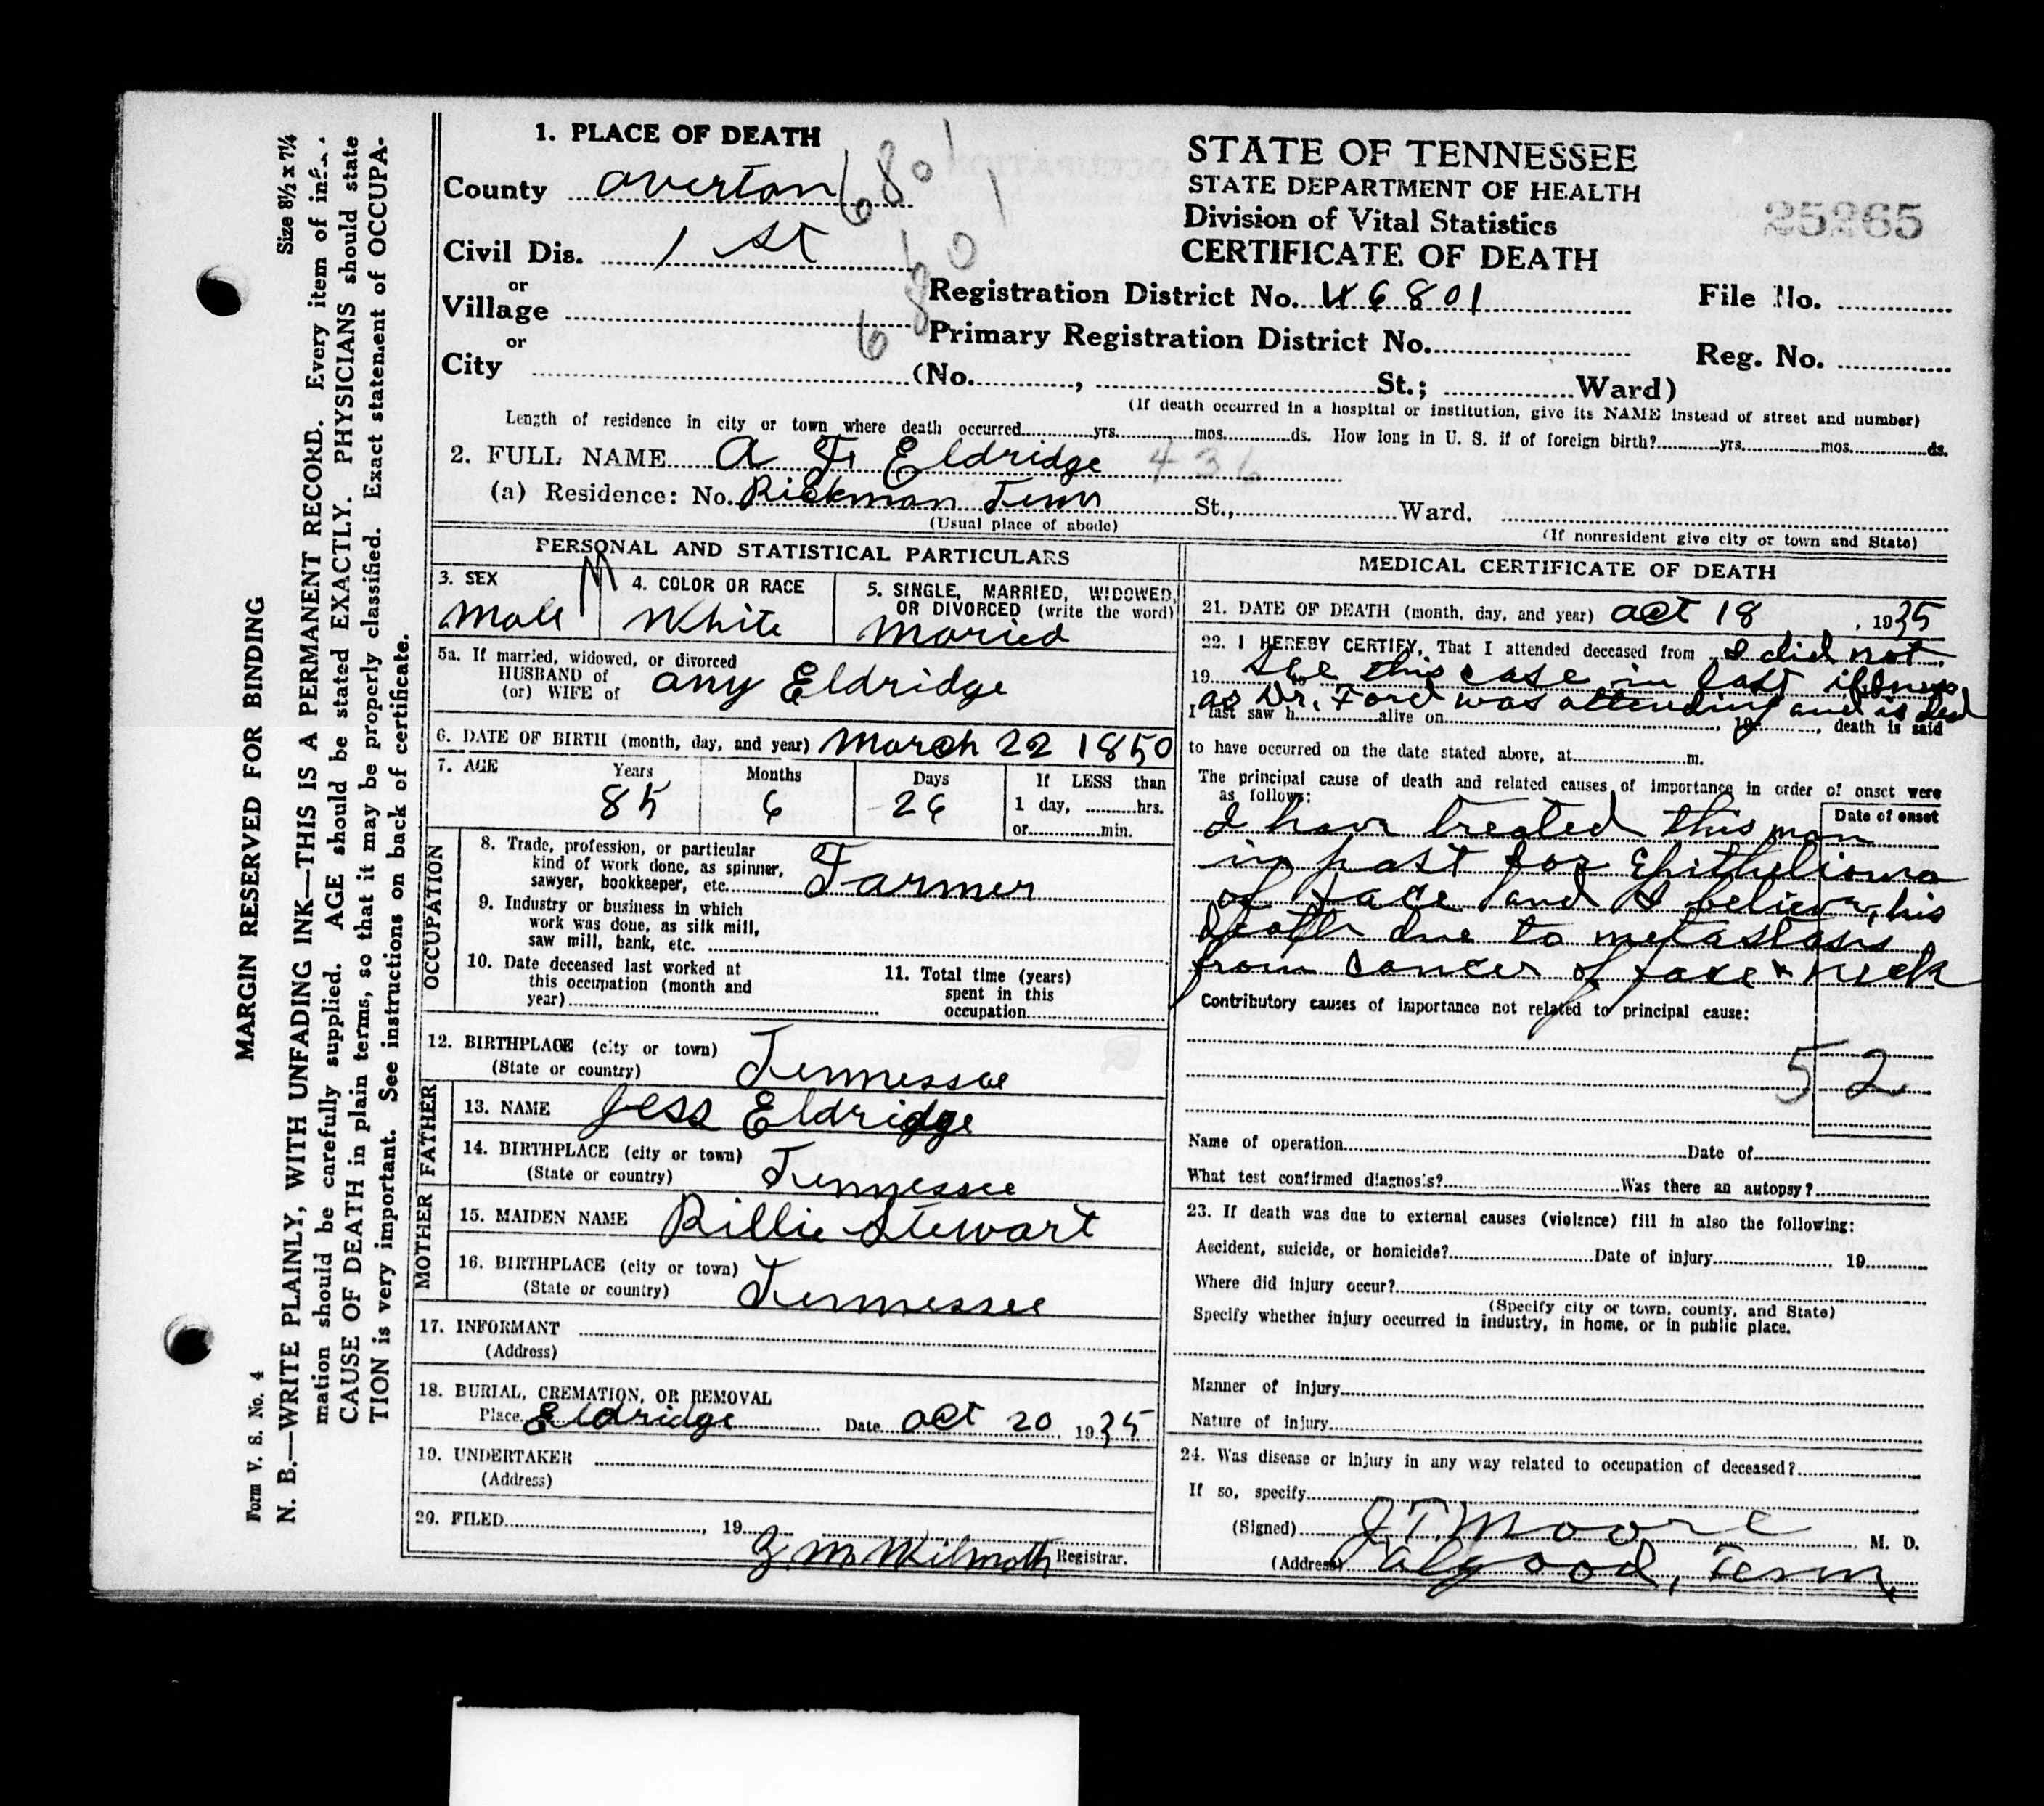 MARGIN RESERVED FOR BINDING
Form V. S. No. 4
Size 8½ x 7¼
N. B.—WRITE PLAINLY, WITH UNFADING INK—THIS IS A PERMANENT RECORD. Every item of
mation should be carefully supplied. AGE should be stated EXACTLY. PHYSICIANS should state
CAUSE OF DEATH in plain terms, so that it may be properly classified. Exact statement of OCCUPA-
TION is very important. See instructions on back of certificate.
1. PLACE OF DEATH
County Overton 6801
Civil Dis. 1 st
or
Village
or
City (No. , St.; Ward)
6801
STATE OF TENNESSEE
STATE DEPARTMENT OF HEALTH
Division of Vital Statistics
CERTIFICATE OF DEATH
25265
Registration District No. 6801
File No.
Primary Registration District No.
Reg. No.
(If death occurred in a hospital or institution, give its NAME instead of street and number)
Length of residence in city or town where death occurred yrs. mos. ds. How long in U. S. if of foreign birth? yrs. mos. ds.
2. FULL NAME A F Eldridge 436
(a) Residence: No. Rickman Tenn St., Ward.
(Usual place of abode)
(If nonresident give city or town and State)
PERSONAL AND STATISTICAL PARTICULARS
3. SEX
Male
M
4. COLOR OR RACE
White
5. SINGLE, MARRIED, WIDOWED,
OR DIVORCED (write the word)
Maried
5a. If married, widowed, or divorced
HUSBAND of
(or) WIFE of any Eldridge
6. DATE OF BIRTH (month, day, and year) March 22 1850
7. AGE Years Months Days If LESS than
85 6 26 1 day, hrs.
or min.
OCCUPATION
8. Trade, profession, or particular
kind of work done, as spinner,
sawyer, bookkeeper, etc. Farmer
9. Industry or business in which
work was done, as silk mill,
saw mill, bank, etc.
10. Date deceased last worked at
this occupation (month and
year)
11. Total time (years)
spent in this
occupation
12. BIRTHPLACE (city or town)
(State or country) Tennessee
FATHER
13. NAME Jess Eldridge
14. BIRTHPLACE (city or town)
(State or country) Tennessee
MOTHER
15. MAIDEN NAME Billie Stewart
16. BIRTHPLACE (city or town)
(State or country) Tennessee
17. INFORMANT
(Address)
18. BURIAL, CREMATION, OR REMOVAL
Place Eldridge Date Oct 20, 1935
19. UNDERTAKER
(Address)
20. FILED , 19
Z. M. Wilmoth Registrar.
MEDICAL CERTIFICATE OF DEATH
21. DATE OF DEATH (month, day, and year) Oct 18, 1935
22. I HEREBY CERTIFY, That I attended deceased from I did not
19 see this case in last illness
as Dr. Ford was attending and is dead
I last saw h alive on , 19 , death is said
to have occurred on the date stated above, at m.
The principal cause of death and related causes of importance in order of onset were
as follows:
Date of onset
I have treated this man
in past for Epithelioma
of face and I believe his
death due to metastasis
from cancer of face & neck
Contributory causes of importance not related to principal cause:
52
Name of operation Date of
What test confirmed diagnosis? Was there an autopsy?
23. If death was due to external causes (violence) fill in also the following:
Accident, suicide, or homicide? Date of injury 19
Where did injury occur?
(Specify city or town, county, and State)
Specify whether injury occurred in industry, in home, or in public place.
Manner of injury
Nature of injury
24. Was disease or injury in any way related to occupation of deceased?
If so, specify
(Signed) J. T. Moore M. D.
(Address) Algood, Tenn.